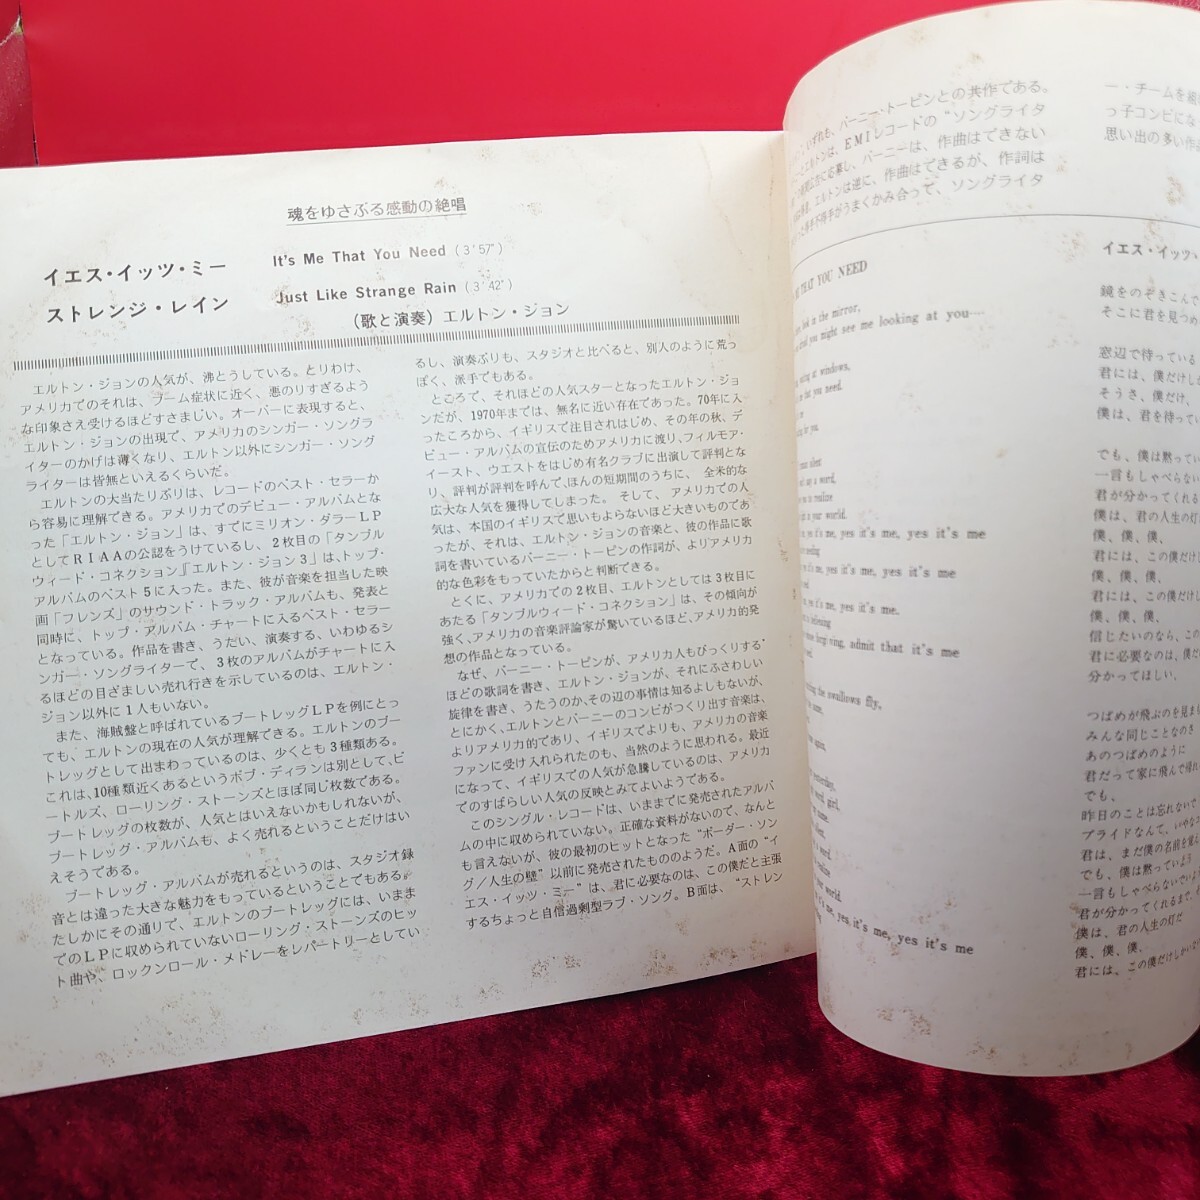 魂をゆさぶる感動の絶唱
イエス・イッツ・ミー It's Me That You Need (3'57")
ストレンジ・レイン Just Like Strange Rain (3'42")
(歌と演奏) エルトン・ジョン
エルトン・ジョンの人気が、沸とうしている。とりわけ、
アメリカでのそれは、ブーム症状に近く、悪のりすぎるよう
な印象さえ受けるほどすさまじい。オーバーに表現すると、
エルトン・ジョンの出現で、アメリカのシンガー・ソングラ
イターのかげは薄くなり、エルトン以外にシンガー・ソング
ライターは皆無といえるくらいだ。
エルトンの大当たりぶりは、レコードのベスト・セラーか
ら容易に理解できる。アメリカでのデビュー・アルバムとな
った「エルトン・ジョン」は、すでにミリオン・ダラーLP
としてRIAAの公認をうけているし、2枚目の「タンブル
ウィード・コネクション」『エルトン・ジョン3」は、トップ・
アルバムのベスト5に入った。また、彼が音楽を担当した映
画「フレンズ」のサウンド・トラック・アルバムも、発表と
同時に、トップ・アルバム・チャートに入るベスト・セラー
となっている。作品を書き、うたい、演奏する、いわゆるシ
ンガー・ソングライターで、3枚のアルバムがチャートに入
るほどの目ざましい売れ行きを示しているのは、エルトン・
ジョン以外に1人もいない。
また、海賊盤と呼ばれているブートレッグLPを例にとっ
ても、エルトンの現在の人気が理解できる。エルトンのブー
トレッグとして出まわっているのは、少くとも3種類ある。
これは、10種類近くあるというボブ・ディランは別として、ビ
ートルズ、ローリング・ストーンズとほぼ同じ枚数である。
ブートレッグの枚数が、人気とはいえないかもしれないが、
ブートレッグ・アルバムも、よく売れるということだけはい
えそうである。
ブートレッグ・アルバムが売れるというのは、スタジオ録
音とは違った大きな魅力をもっているということでもある。
たしかにその通りで、エルトンのブートレッグには、いまま
でのLPに収められていないローリング・ストーンズのヒッ
ト曲や、ロックンロール・メドレーをレパートリーとしてい
るし、演奏ぶりも、スタジオと比べると、別人のように荒っ
ぽく、派手でもある。
ところで、それほどの人気スターとなったエルトン・ジョ
ンだが、1970年までは、無名に近い存在であった。70年に入
ったころから、イギリスで注目されはじめ、その年の秋、デ
ビュー・アルバムの宣伝のためアメリカに渡り、フィルモア・
イースト、ウエストをはじめ有名クラブに出演して評判とな
り、評判が評判を呼んで、ほんの短期間のうちに、全米的な
広大な人気を獲得してしまった。そして、アメリカでの人
気は、本国のイギリスで思いもよらないほど大きいものであ
ったが、それは、エルトン・ジョンの音楽と、彼の作品に歌
詞を書いているバーニー・トーピンの作詞が、よりアメリカ
的な色彩をもっていたからと判断できる。
とくに、アメリカでの2枚目、エルトンとしては3枚目に
あたる「タンブルウィード・コネクション」は、その傾向が
強く、アメリカの音楽評論家が驚いているほど、アメリカ的発
想の作品となっている。
なぜ、バーニー・トーピンが、アメリカ人もびっくりする
ほどの歌詞を書き、エルトン・ジョンが、それにふさわしい
旋律を書き、うたうのか、その辺の事情は知るよしもないが、
とにかく、エルトンとバーニーのコンビがつくり出す音楽は、
よりアメリカ的であり、イギリスでよりも、アメリカの音楽
ファンに受け入れられたのも、当然のように思われる。最近
になって、イギリスでの人気が急騰しているのは、アメリカ
でのすばらしい人気の反映とみてよいようである。
このシングル・レコードは、いままでに発売されたアルバ
ムの中に収められていない。正確な資料がないので、なんと
も言えないが、彼の最初のヒットとなった“ボーダー・ソン
グ/人生の壁”以前に発売されたもののようだ。A面の“イ
エス・イッツ・ミー”は、君に必要なのは、この僕だと主張
するちょっと自信過剰型ラブ・ソング。B面は、“ストレン
いずれも、バーニー・トーピンとの共作である。
ルトンは、EMIレコードの“ソングライタ
広告に応募し、バーニーは、作曲はできない
エルトンは逆に、作曲はできるが、作詞は
不得手がうまくかみ合って、ソングライタ
ー・チームを組
っ子コンビにな
思い出の多い作
THAT YOU NEED
look in the mirror,
you might see me looking at you…
at windows,
that you need.
for you.
silent
say a word,
to realize
in your world.
it's me, yes it's me, yes it's me
it's me, yes it's me
yes it's me, yes it's me.
forgiving, admit that it's me
the swallows fly,
same.
again.
yesterday,
girl.
realize
world.
it's me, yes it's me, yes it's me
イエス・イッツ・
鏡をのぞきこんで
そこに君を見つめ
窓辺で待っている
君には、僕だけし
そうさ、僕だけ、
僕は、君を待ってい
でも、僕は黙ってい
一言もしゃべらない
君が分かってくれる
僕は、君の人生の灯
僕、僕、僕、
君には、この僕だけし
僕、僕、僕、
君には、この僕だけし
僕、僕、僕、
信じたいのなら、この
君に必要なのは、僕だ
分かってほしい。
つばめが飛ぶのを見ま
みんな同じことなのさ
あのつばめのように
君だって家に飛んで帰れ
でも、
昨日のことは忘れないで
プライドなんて、いやな
君は、まだ僕の名前を覚え
でも、僕は黙っていよう
一言もしゃべらないでいよ
君が分かってくれるまで、
僕は、君の人生の灯だ
僕、僕、僕、
君には、この僕だけしかいな